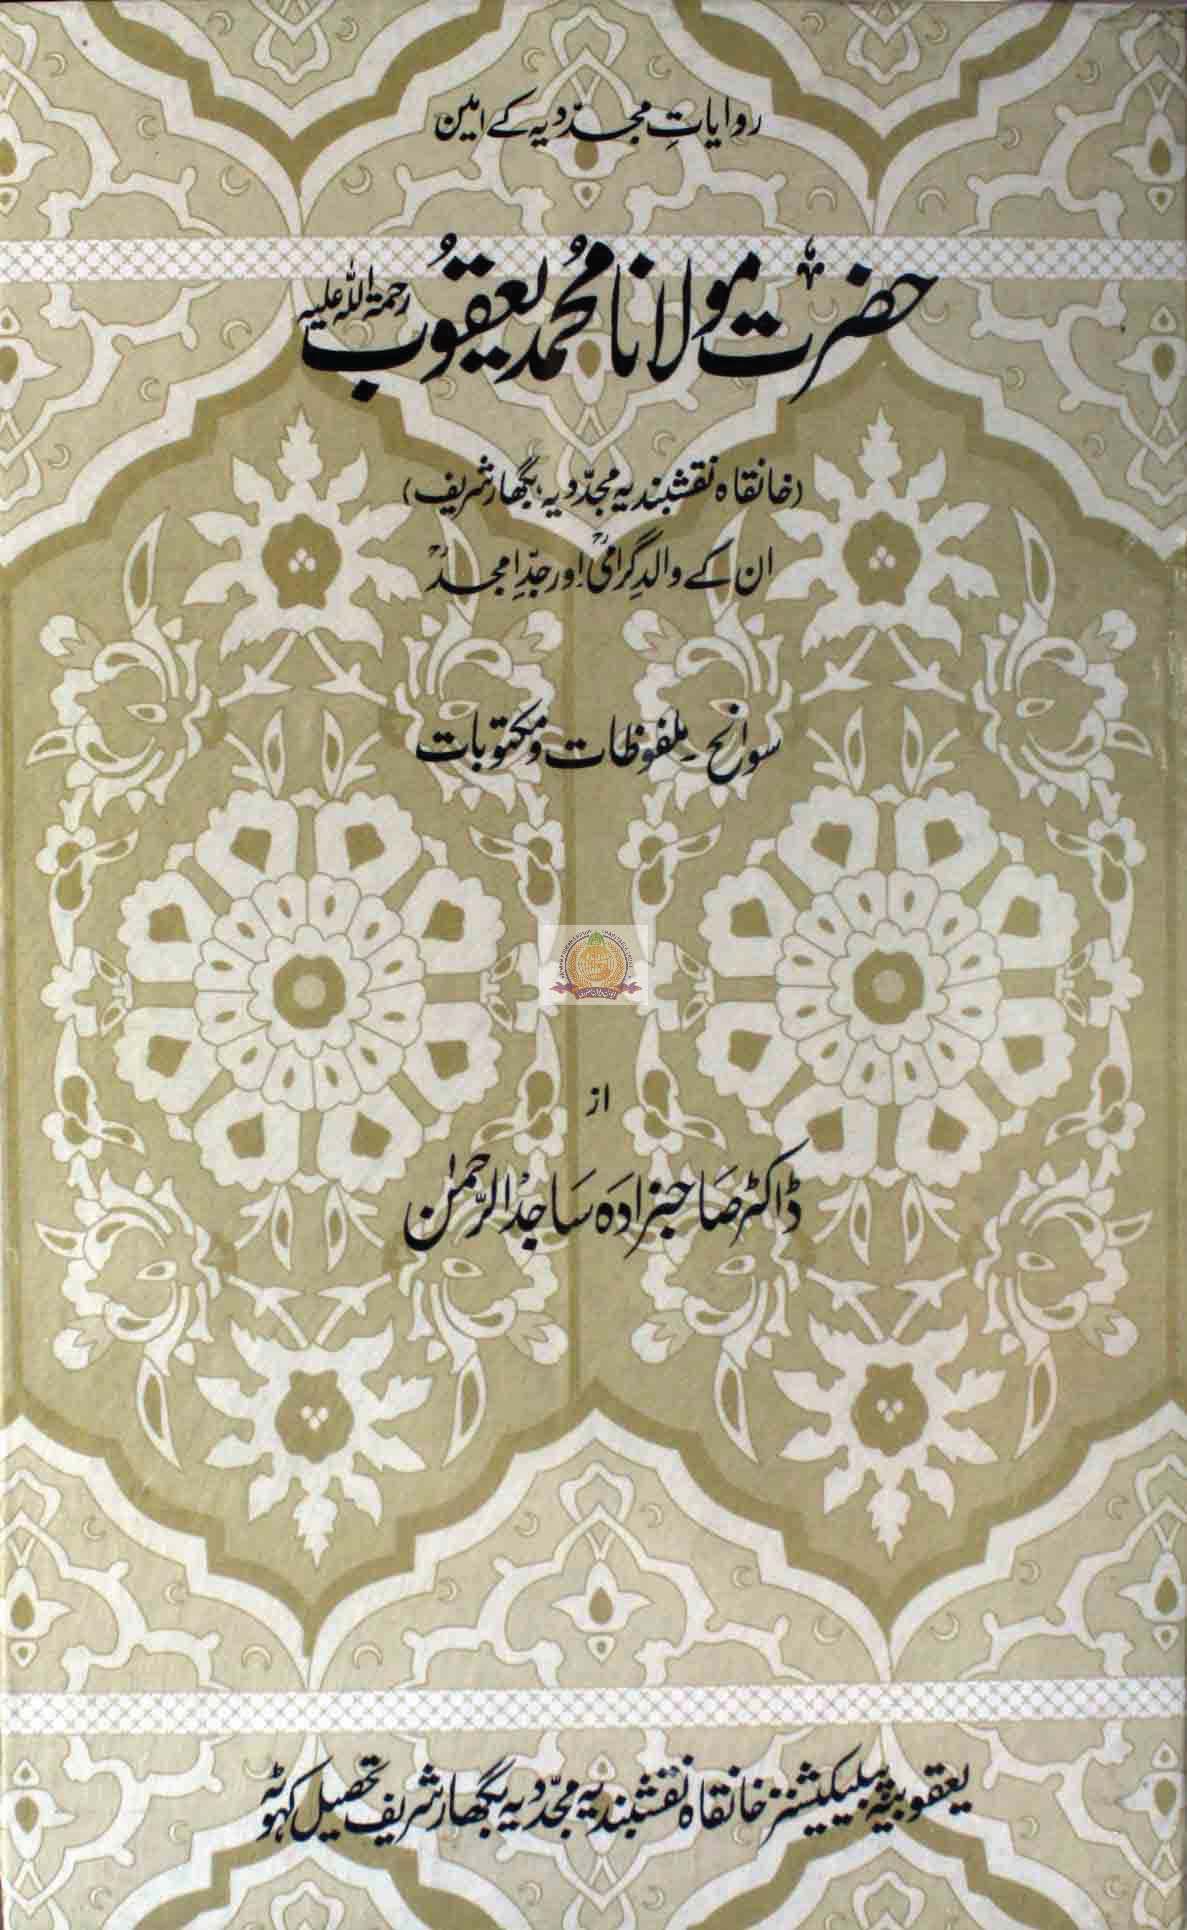 روایاتِ مجدّدیہ کے امین
حضرت مولانا محمد یعقُوب رحمۃ اللہ علیہ
(خانقاہ نقشبندیہ مجدّدیہ، بگھار شریف)
ان کے والدِ گرامیؒ اور جدِّ امجدؒ
سوانح ۔ ملفوظات و مکتوبات
از
ڈاکٹر صاحبزادہ ساجدُ الرّحمٰن
یعقوبیہ پبلیکیشنز خانقاہ نقشبندیہ مجدّدیہ بگھار شریف تحصیل کہوٹہ